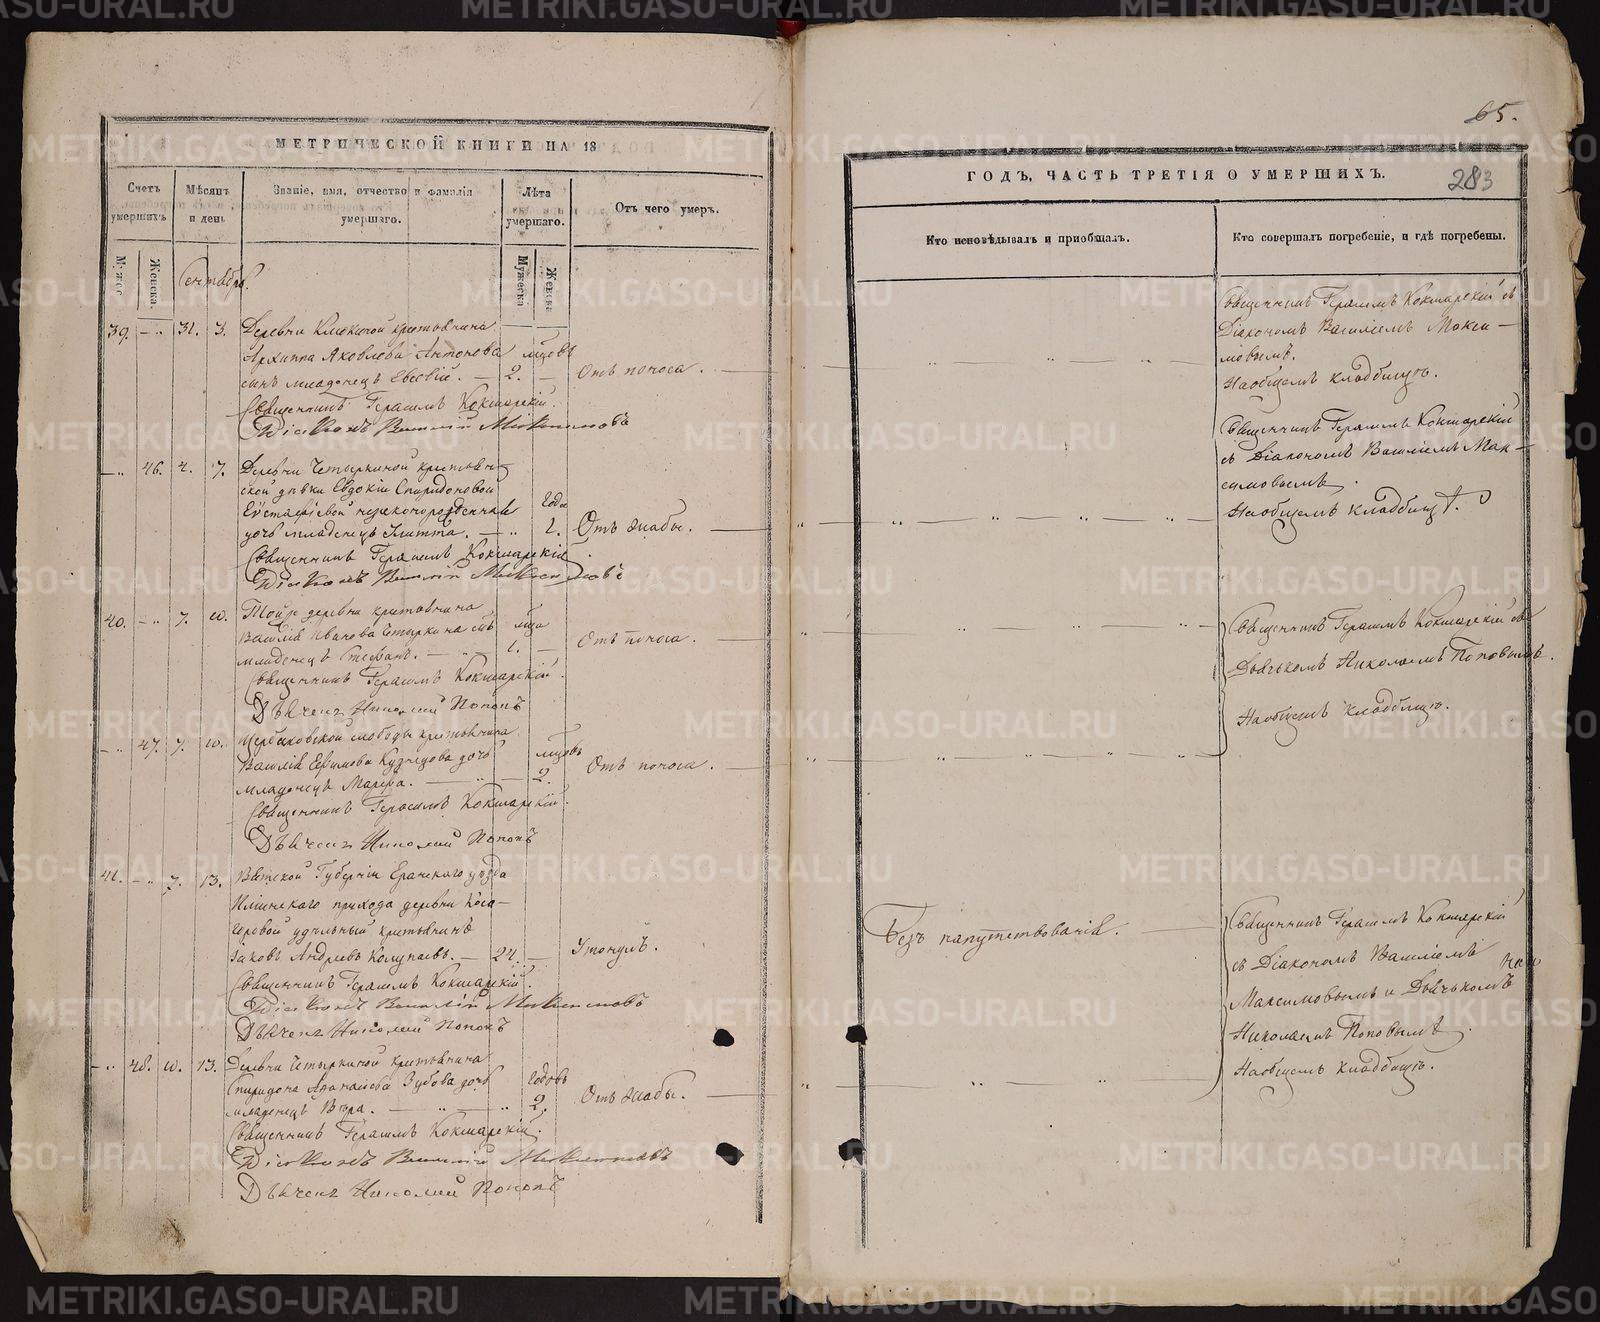 МЕТРИЧЕСКОЙ КНИГИ НА 18
Счетъ умершихъ.
Мѣсяцъ и день
Званіе, имя, отчество и фамилія умершаго.
Лѣта умершаго.
Отъ чего умеръ.
Мужеска.
Женска.
Сентябрь.
Мужеска
Женска
39. — „ 31. 3. Деревни Клюкиной крестьянина
Архиппа Яковлева Антонова мцовъ
сынъ младенецъ Евсевій. — 2. — Отъ поноса.
Священникъ Герасимъ Кокшарскій.
Діаконъ Василій Максимовъ
— „ 46. 4. 7. Деревни Четыркиной крестьян-
ской дѣвки Евдокіи Спиридоновой
Евстафіевой незаконорожденная Года
дочь младенецъ Улитта. — „ 1. Отъ жабы.
Священникъ Герасимъ Кокшарскій
Діаконъ Василій Максимовъ
40. — „ 7. 10. Той же деревни крестьянина
Василія Иванова Четыркина сынъ мца
младенецъ Стефанъ. — „ — 1. — Отъ поноса.
Священникъ Герасимъ Кокшарскій.
Дьячекъ Николай Поповъ
— „ 47. 7. 10. Щербаковской слободы крестьянина
Василія Ефимова Кузнецова дочь мцовъ
младенецъ Марѳа. — „ — 2. Отъ поноса.
Священникъ Герасимъ Кокшарскій.
Дьячекъ Николай Поповъ
41. — „ 7. 13. Вятской Губерніи Еранского уѣзда
Ильинскаго прихода деревни
удѣльный крестьянинъ
Іаковъ Андреевъ — 24. — Утонулъ.
Священникъ Герасимъ Кокшарскій.
Діаконъ Василій Максимовъ
Дьячекъ Николай Поповъ
— „ 48. 10. 13. Деревни Четыркиной крестьянина
Спиридона Ананьева Зубова дочь Годовъ
младенецъ Вѣра. — „ — „ 2. Отъ жабы.
Священникъ Герасимъ Кокшарскій.
Діаконъ Василій Максимовъ
Дьячекъ Николай Поповъ
65.
283
ГОДЪ, ЧАСТЬ ТРЕТІЯ О УМЕРШИХЪ.
Кто исповѣдывалъ и пріобщалъ.
Кто совершалъ погребеніе, и гдѣ погребены.
Священникъ Герасимъ Кокшарскій съ
Діакономъ Василіемъ Макси-
мовымъ.
На общемъ кладбищѣ.
Священникъ Герасимъ Кокшарскій
съ Діакономъ Василіемъ Мак-
симовымъ.
На общемъ кладбищѣ.
Священникъ Герасимъ Кокшарскій съ
Дьячкомъ Николаемъ Поповымъ.
На общемъ кладбищѣ.
Безъ напутствованія.
Священникъ Герасимъ Кокшарскій
съ Діакономъ Василіемъ
Максимовымъ и Дьячькомъ
Николаемъ Поповымъ.
На общемъ кладбищѣ.
METRIKI.GASO-URAL.RU